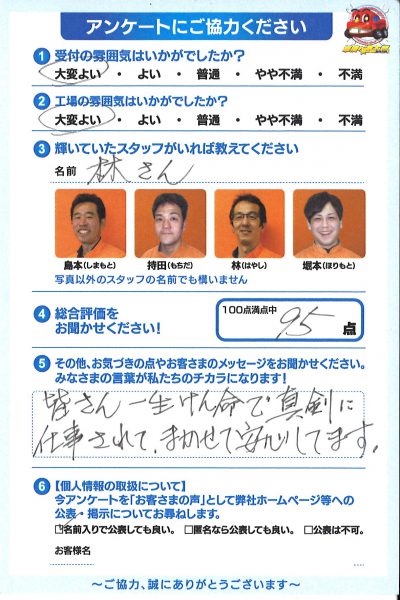 アンケートにご協力ください
1 受付の雰囲気はいかがでしたか?
大変よい ・ よい ・ 普通 ・ やや不満 ・ 不満
2 工場の雰囲気はいかがでしたか?
大変よい ・ よい ・ 普通 ・ やや不満 ・ 不満
3 輝いていたスタッフがいれば教えてください
名前 林さん
島本(しまもと) 持田(もちだ) 林(はやし) 堀本(ほりもと)
写真以外のスタッフの名前でも構いません
4 総合評価をお聞かせください!
100点満点中 95 点
5 その他、お気づきの点やお客さまのメッセージをお聞かせください。
みなさまの言葉が私たちのチカラになります!
皆さん一生けん命で真剣に
仕事されて、まかせて安心してます。
6 【個人情報の取扱について】
今アンケートを「お客さまの声」として弊社ホームページ等への
公表・掲示についてお尋ねします。
□名前入りで公表しても良い。 □匿名なら公表しても良い。 □公表は不可。
お客様名
～ご協力、誠にありがとうございます～